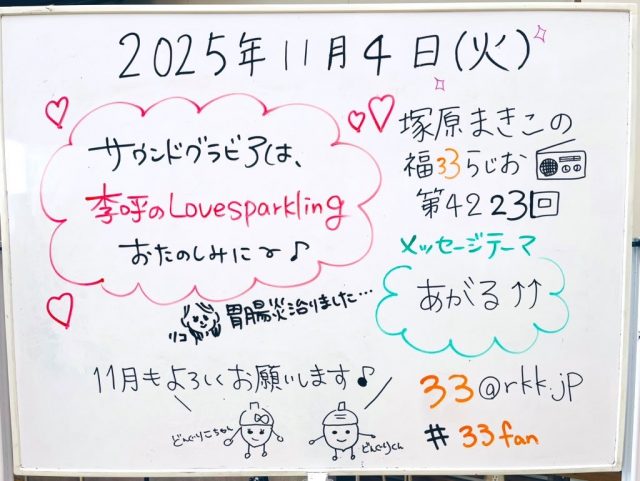 2025年11月4日(火)
サウンドグラビアは、
李呼のLovesparkling
おたのしみに〜♪
塚原まきこの
福33らじお
第4223回
メッセージテーマ
あがる↑↑
リコ
胃腸炎治りました…
11月もよろしくお願いします♪
どんぐりこちゃん
どんぐりくん
33@rkk.jp
#33fan